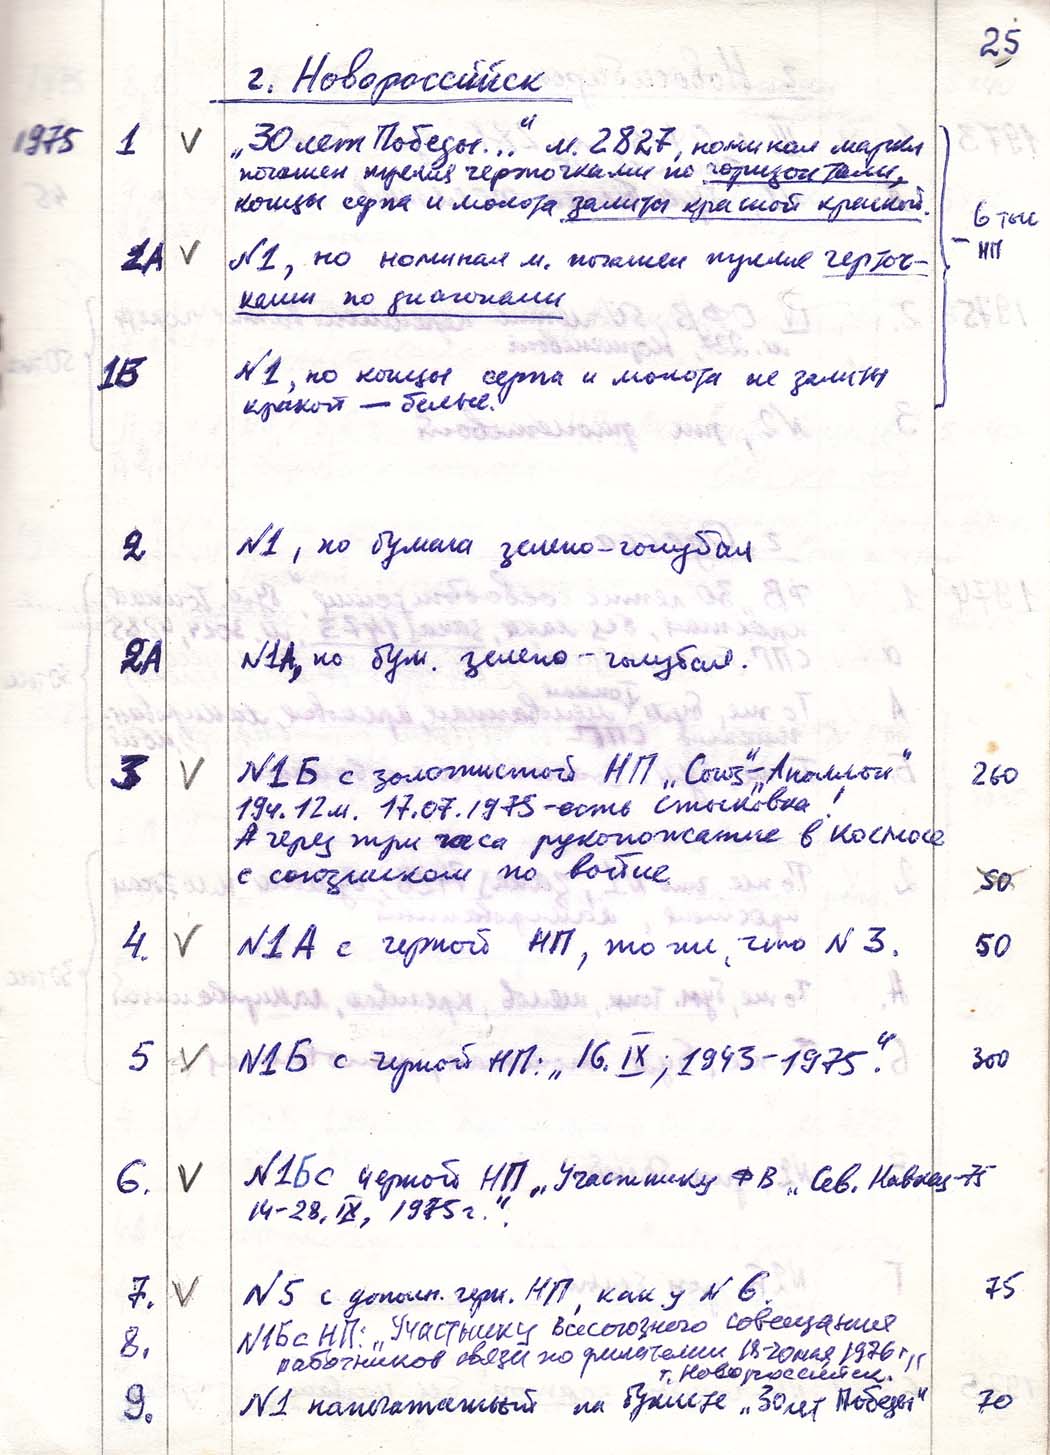 25
г. Новороссийск
1975 1 V „30 лет Победы..." м. 2827, номинал марки
погашен тремя черточками по горизонтали,
концы серпа и молота залиты красной краской.
6 тыс
НП
1А V N1, но номинал м. погашен тремя черточ-
ками по диагонали
1Б N1, но концы серпа и молота не залиты
краской — белые.
2 N1, но бумага зелено-голубая
2А N1А, но бум. зелено-голубая.
3 V N1Б с золотистой НП „Союз"-„Аполлон" 260
19ч. 12м. 17.07.1975-есть стыковка!
А через три часа рукопожатие в космосе
с союзником по войне 50
4. V N1А с черной НП, то же, что N3. 50
5 V N1Б с черной НП: „16.IX; 1943-1975". 300
6. V N1Б с черной НП „Участнику ФВ „Сев. Кавказ-75
14-28.IX, 1975г.".
7. V N5 с дополн. черн. НП, как у N6. 75
8. N1Б с НП: „Участнику Всесоюзного совещания
работников связи по филателии мая 1976г.,
г. Новороссийск.
9. N1 напечатанный на буклете „30 лет Победы" 70